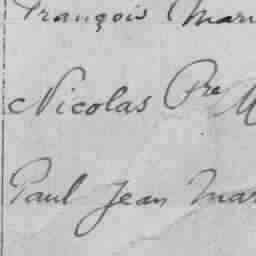 François Mari
Nicolas Pre M
Paul Jean Mar